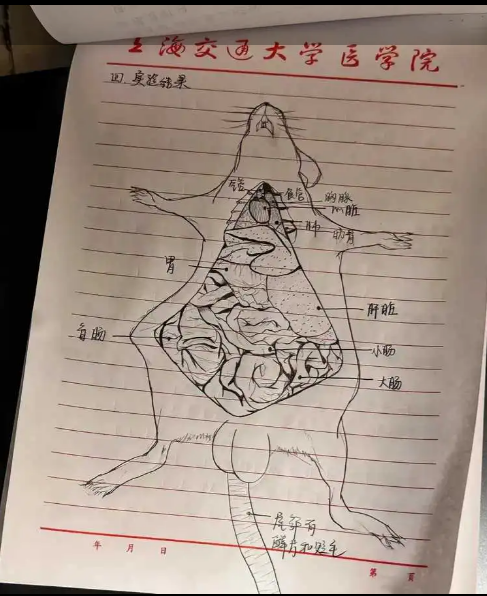 上海交通大学医学院
四、实验结果
气管
食管
胸腺
心脏
肺
肋骨
胃
肝脏
盲肠
小肠
大肠
尾部有
鳞片和短毛
年 月 日
第 页